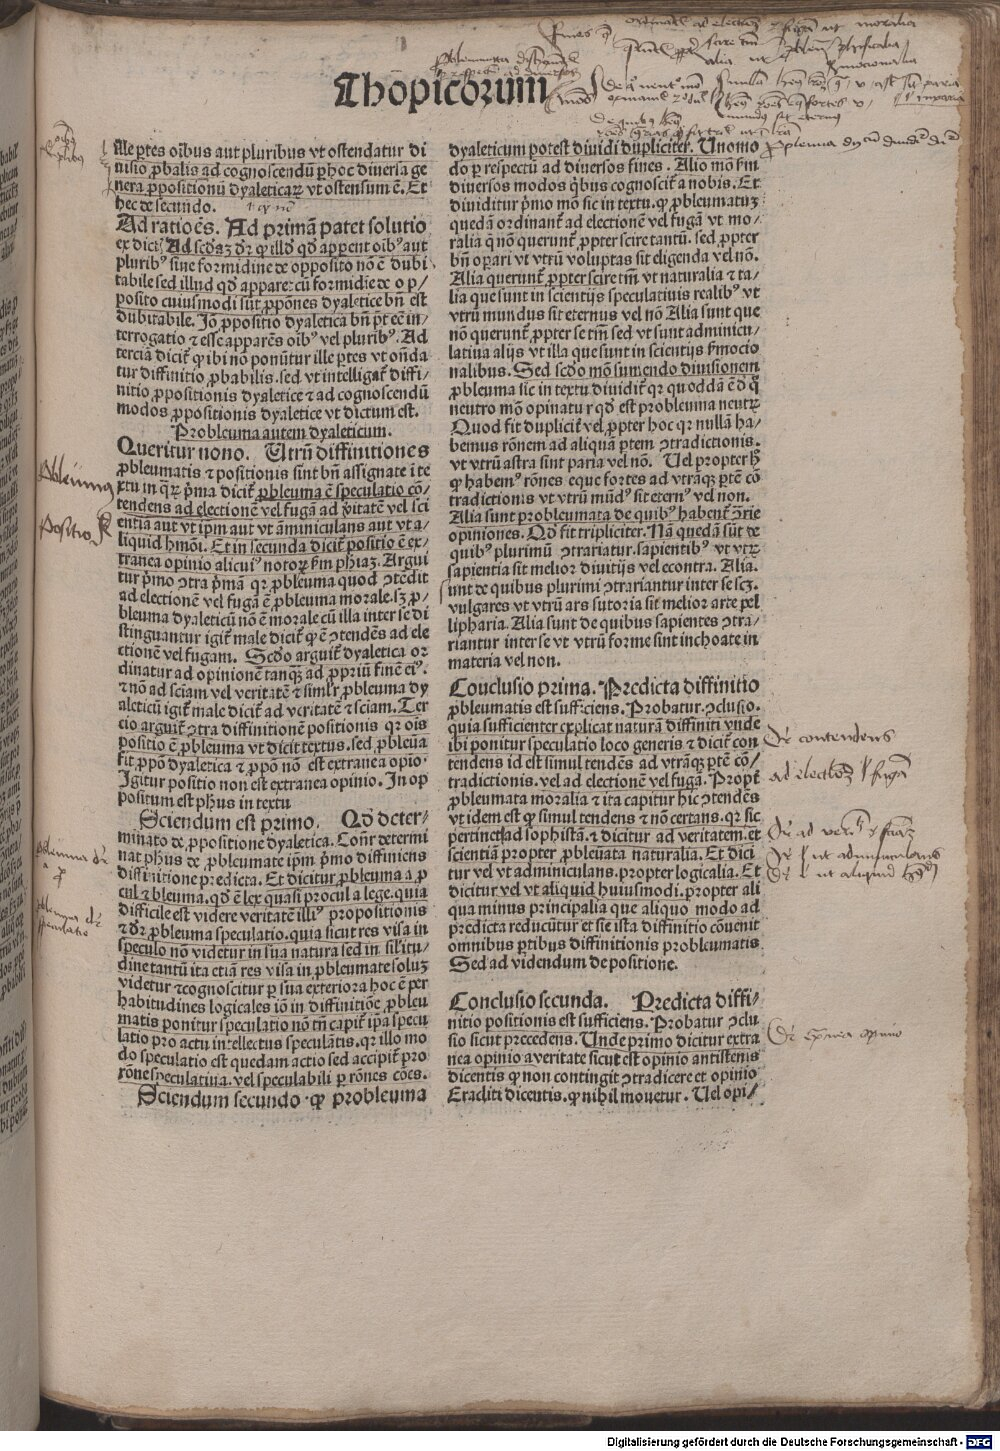 Thopicorum
Ille ꝑtes oībus aut pluribus vt ostendatur di
uisio ꝓbalis ad cognoscendū ꝑ hoc diuersa ge
nera ꝓpositionū dyaleticaꝝ vt ostensum ē. Et
hec de secundo.
Ad ratiōes. Ad primā patet solutio
ex dictꝭ Ad scd̄aꝫ dr̄ ꝙ illd̓ qd̓ apparent oībꝰ aut
pluribꝰ siue formidine de opposito nō ē dubi
tabile sed illud qd̓ apparet cū formidīe de op/
posito cuiusmodi sūt ꝓpōnes dyaletice bn̄ est
dubitabile. Iō ꝓpositio dyaletica bn̄ pōt eē in/
terrogatio ⁊ esse apparēs oībꝰ vel pluribꝰ. Ad
terciā dicit̄ ꝙ ibi nō ponūtur ille ꝑtes vt on̄da
tur diffinitio ꝓbabilis. sed vt intelligat̄ diffi/
nitio ꝓpositionis dyaletice ⁊ ad cognoscendū
modos ꝓpositionis dyaletice vt dictum est.
Probleuma autem dyaleticum.
Queritur nono. Utrū diffinitiones
ꝓbleumatis ⁊ positionis sint bn̄ assignate ī te
xtu in qꝝ pͥma dicit̄ ꝓbleuma ē speculatio cō/
tendens ad electionē vel fugā ad ꝟitatē vel sci
entiā aut vt ip̄m aut vt am̄iniculans aut vt a/
liquid hmōi. Et in secunda dicit̄ positio ē ex/
tranea opinio alicuiꝰ notoꝝ s̄m phīaꝫ. Argui
tur pͥmo ꝯtra pͥmā qꝛ ꝓbleuma quod ꝯtēdit
ad electionē vel fugā ē ꝓbleuma morale. sꝫ ꝓ/
bleuma dyaleticū nō ē morale cū illa inter se di
stinguantur igit̄ male dicit̄ ꝙ ē ꝯtendēs ad ele
ctionē vel fugam. Scd̄o arguit̄ dyaletica or
dinatur ad opinionē tanqꝫ ad ꝓpriū finē eiꝰ.
⁊ nō ad sciam vel veritatē ⁊ simlr̄ ꝓbleuma dy
aleticū igit̄ male dicit̄ ad veritatē ⁊ sciam. Ter
cio arguit̄ ꝯtra diffinitionē positionis qꝛ oīs
positio ē ꝓbleuma vt dicit textus. sed ꝓbleūa
fit ꝓpō dyaletica ⁊ ꝓpō nō est extranea opīo.
Igitur positio non est extranea opinio. In op
positum est ph̄us in textu
Sciendum est primo. Qd̓ deter-
minato de ꝓpositione dyaletica. Con̄r determi
nat ph̄us de ꝓbleumate ipm̄ pͥmo diffiniens
diffinitione predicta. Et dicitur ꝓbleuma a ꝓ
cul ⁊ bleuma. qd̓ ē lex quasi procul a lege. quia
difficile est videre veritatē illiꝰ propositionis
⁊ dr̄ ꝓbleuma speculatio. quia sicut res visa in
speculo nō videtur in sua natura sed in sil̓itu/
dine tantū ita etiā res visa in ꝓbleumate soluꝫ
videtur ⁊cognoscitur ꝑ sua exteriora hoc ē per
habitudines logicales iō in diffinitiōe ꝓbleu
matis ponitur speculatio nō tn̄ capit̄ ip̄a specu
latio pro actu intellectus speculātis. qꝛ illo mo
do speculatio est quedam actio sed accipit̄ pro
rōne speculatiua. vel speculabili ꝑ rōnes cōes.
Sciendum secundo. ꝙ probleuma
dyaleticum potest diuidi dupliciter. Uno mo
do ꝑ respectū ad diuersos fines. Alio mō s̄m
diuersos modos qͥbus cognoscit̄ a nobis. Et
diuiditur pͥmo mō sic in textu. ꝙ ꝓbleumatuꝫ
quedā ordinant̄ ad electionē vel fugā vt mo/
ralia q̄ nō querunt̄ ꝓpter scire tantū. sed ꝓpter
bn̄ oꝑari vt vtrū voluptas sit eligenda vel nō.
Alia querunt̄ ꝓpter scire tm̄ vt naturalia ⁊ ta/
lia que sunt in scientijs speculatiuis realibꝰ vt
vtrū mundus sit eternus vel nō Alia sunt que
nō querunt̄ ꝓpter se tm̄ sed vt sunt adminicu/
latiua alijs vt illa que sunt in scientijs s̄mocio
nalibus. Sed scd̄o mō sumendo diuisionem
ꝓbleuma sic in textu diuidit̄ qꝛ quoddā ē d̓ q̄
neutro mō opinatur qd̓ est probleuma neutꝝ
Quod fit duplicit̄ vel ꝓpter hoc qꝛ nullā ha/
bemus rōnem ad aliquā ꝑtem ꝯtradictionis.
vt vtrū astra sint paria vel nō. Uel propter h̄
ꝙ habemꝰ rōnes eque fortes ad vtrāqꝫ ꝑtē cō
tradictionis vt vtrū mūdꝰ sit eternꝰ vel non.
Alia sunt probleumata de quibꝰ habent̄ ꝯrie
opiniones. Qd̓ fit tripliciter. Nā quedā sūt de
quibꝰ plurimū ꝯtrariatur. sapientibꝰ vt vtꝝ
sapientia sit melior diuitijs vel econtra. Alia.
sunt de quibus plurimi ꝯtrariantur inter se scꝫ.
vulgares vt vtrū ars sutoria sit melior arte pel
lipharia. Alia sunt de quibus sapientes ꝯtra/
riantur inter se vt vtrū forme sint inchoate in
materia vel non.
Couclusio prima. Predicta diffinitio
ꝓbleumatis est sufficiens. Probatur. ꝯclusio.
quia sufficienter explicat naturā diffiniti vnde
ibi ponitur speculatio loco generis ⁊ dicit̄ con
tendens id est simul tendēs ad vtrāqꝫ ꝑtē cō/
tradictionis. vel ad electionē vel fugā. Propt̄
ꝓbleumata moralia ⁊ ita capitur hic ꝯtendēs
vt idem est ꝙ simul tendens ⁊ nō certans. qꝛ sic
pertinet ad sophistā. ⁊ dicitur ad veritatem. et
scientiā propter ꝓbleūata naturalia. Et dici
tur vel vt adminiculans. propter logicalia. Et
dicitur vel vt aliquid huiusmodi. ꝓpter ali
qua minus principalia que aliquo modo ad
p̄redicta reducūtur et sic ista diffinitio cōuenit
omnibus ꝑtibus diffinitionis probleumatis
Sed ad videndum de positione.
Conclusio secunda. Predicta diffi/
nitio positionis est sufficiens. Probatur ꝯclu
sio sicut precedens. Unde primo dicitur extra
nea opinio a veritate sicut est opinio antistenis
dicentis ꝙ non contingit ꝯtradicere et opinio
Eracliti dicentis. ꝙ nihil mouetur. Uel opi/
Digitalisierung gefördert durch die Deutsche Forschungsgemeinschaft - DFG